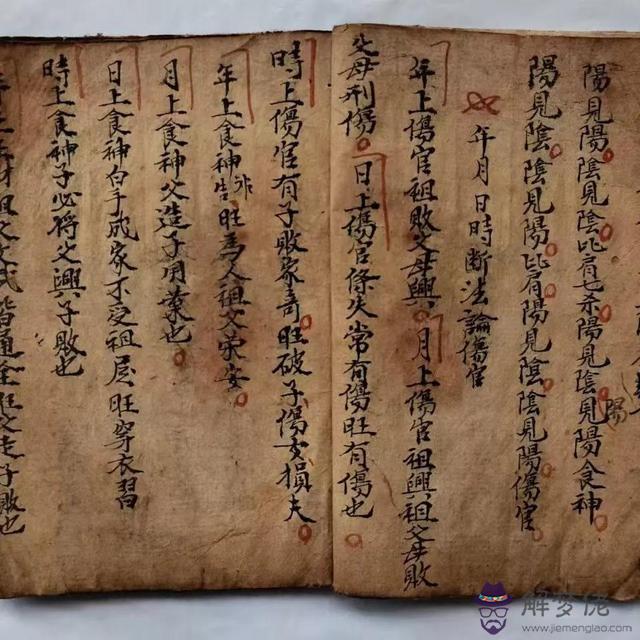 陽見陽陰見陰比肩七杀陽見陰陰見陽食神
陽
陽見陰陰見陽比肩陽見陰陰見陽傷官
年月日時断法論傷官
年上傷官祖敗父母興月上傷官祖興祖父母敗
父母刑傷日上傷官條失常有傷旺有傷也
時上傷官有子敗家奇旺破子傷女損夫
年上食神旺為人祖父榮安
月上食神父造子用業也
日上食神白手成家不受祖居旺穿衣習
時上食神子必将父興子敗也
祖父文武皆通全旺父走子敗也
解梦佬
www.jiemenglao.com